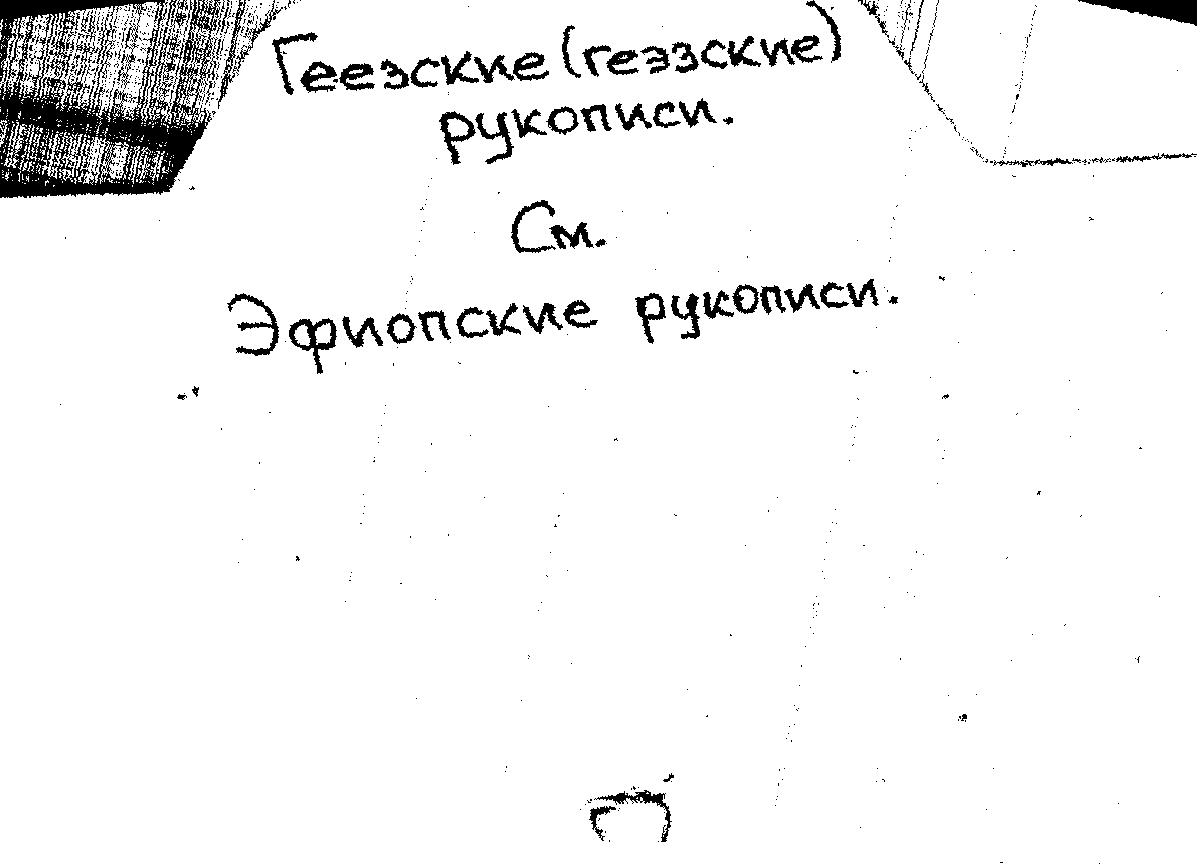 Геезские (геэзские)
рукописи.
См.
Эфиопские рукописи.